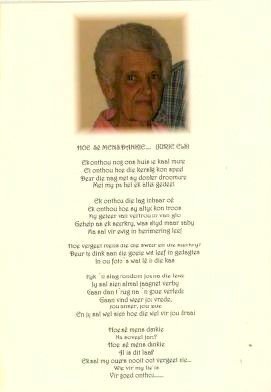 HOE SÊ MENS DANKIE... (JURIE ELS)
Ek onthou nog ons huis se kaal mure
Ek onthou hoe die kerslig kon speel
Deur die nag met sy donker
Met my pa het ek alles gedeel
Ek onthou die lag in haar oë
Ek onthou hoe sy altyd kon troos
My geleer van vertrou en van glo
Gehelp as ek seerkry, was altyd daar
Ma sal vir ewig in herinnering leef
Hoe vergeet mens die en die seerkry?
Deur te dink aan die goeie wat leef in gedagtes
In ou foto's wat lê in die kas
Kyk 'n slag rondom jou na die lewe
Jy sal sien almal jaag net verby
Gaan dan t'rug na 'n goue verlede
Gaan vind weer jou vrede,
En jy sal wel sien hoe die wiel vir jou draai
Hoe sê mens dankie
Na soveel jare?
Hoe sê mens dankie
Al is dit laat
Ek sal my ouers nooit ooit vergeet nie...
Wie vir my lief is
Vir goed onthou......